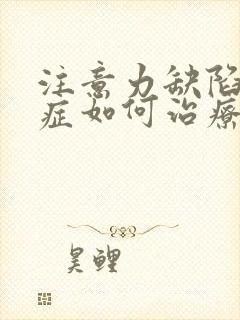 注意力缺陷
症如何治療
昊鲤